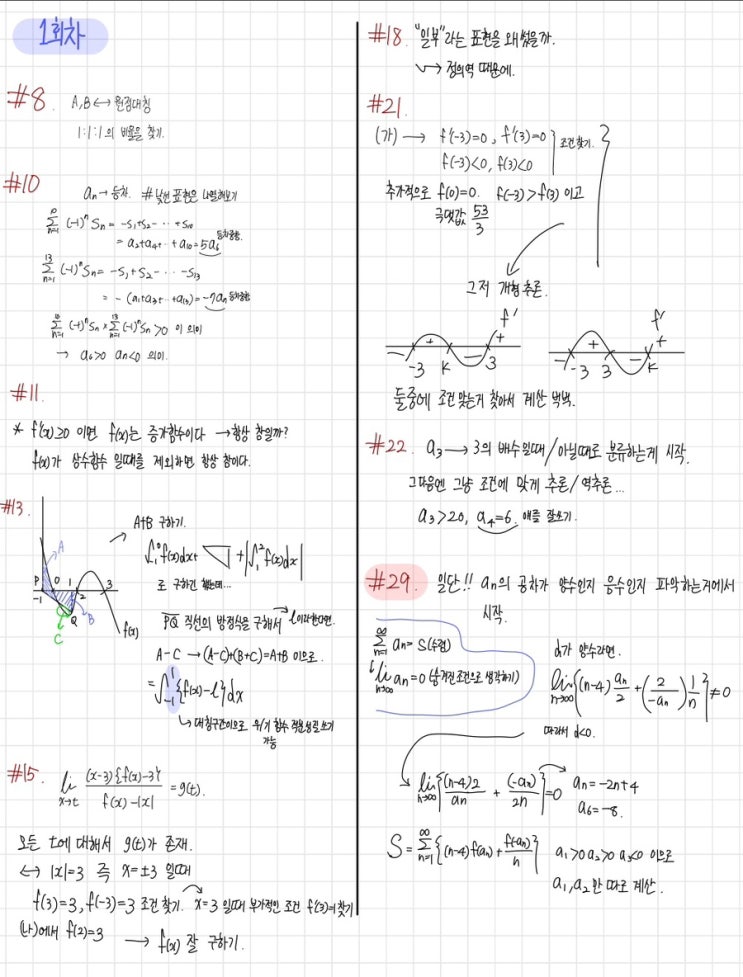 1회차
#8. A,B ↔ 원점대칭
1:1:1의 비율을 찾기.
#10 aₙ → 등차. #낯선 표현은 나열해보기
∑_{n=1}^{10} (-1)ⁿ Sₙ = -S₁+S₂- ‥ +S₁₀
= a₂+a₄+ ‥ +a₁₀ = 5a₆ 등차중항
∑_{n=1}^{13} (-1)ⁿ Sₙ = -S₁+S₂- ‥ -S₁₃
= -(a₁+a₃+ ‥ +a₁₃) = -7a₇ 등차중항
∑_{n=1}^{10} (-1)ⁿ Sₙ × ∑_{n=1}^{13} (-1)ⁿ Sₙ > 0 이 의미
→ a₆>0 a₇<0 의미.
#11.
* f'(x)≥0 이면 f(x)는 증가함수이다 → 항상 참일까?
f(x)가 상수함수 일때를 제외하면 항상 참이다.
#13.
A
P
-1
0
1
2
3
Q
B
C
f(x)
A+B 구하기.
∫₋₁⁰ f(x)dx + ▽ + |∫₁² f(x)dx|
로 구하긴 했는데...
PQ 직선의 방정식을 구해서 → l이라한다면.
A-C → (A-C)+(B+C)=A+B 이므로.
= ∫₋₁¹ {f(x)-l}dx
↳ 대칭구간이므로 우/기 함수 적분성질 쓰기
가능
#15. lim_{x→t} (x-3){f(x)-3} / f(x)-|x| = g(t).
모든 t에 대해서 g(t)가 존재.
↔ |x|=3 즉 x=±3 일때
f(3)=3, f(-3)=3 조건 찾기. x=3 일때 부가적인 조건 f'(3)=1 찾기
(나)에서 f(2)=3 → f(x) 잘 구하기.
#18. "일부"라는 표현을 왜 썼을까.
↳ 정의역 때문에.
#21.
(가) → f'(-3)=0, f'(3)=0
f(-3)<0, f(3)<0
조건찾기.
추가적으로 f(0)=0. f(-3)>f(3) 이고
극댓값 53/3
그저 개형추론.
f' - -3 + K - 3 +
f' - -3 + 3 - K +
둘중에 조건 맞는거 찾아서 계산 벅벅.
#22. a₃ → 3의 배수일때/아닐때로 분류하는게 시작.
그다음엔 그냥 조건에 맞게 추론/역추론...
a₃>20, a₄=6. 얘를 잘쓰기.
#29. 일단!! aₙ의 공차가 양수인지 음수인지 파악하는거에서
시작.
∑_{n=1}^{∞} aₙ = S(수렴)
lim_{n→∞} aₙ = 0 (숨겨진조건으로 생각하기)
d가 양수라면.
lim_{n→∞} {(n-4)aₙ/2 + (2/-aₙ)1/n} ≠ 0
따라서 d<0.
lim_{n→∞} {(n-4)2/aₙ + (-aₙ)/2n} = 0
aₙ=-2n+4
a₆=-8.
S = ∑_{n=1}^{∞} {(n-4)f(aₙ) + f(-aₙ)/n}
a₁>0 a₂>0 a₃<0 이므로
a₁, a₂만 따로 계산.